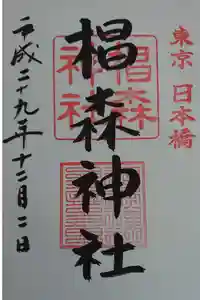 東京 日本橋
椙森神社
椙森
神社
平成二十九年十二月二日